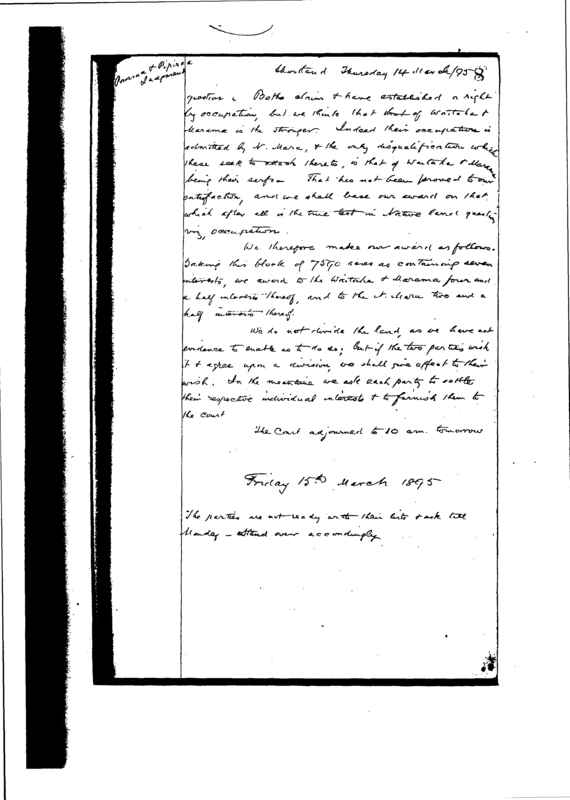 & Pipiroa
Judgment
Shortland Thursday 14 March/95 8
question. Both claim & have established a right
by occupation, but we think that that of Waitaha &
Marama is the stronger. Indeed their occupation is
admitted by N. Maru, & the only disqualification which
these seek to attach thereto, is that of Waitaha & Marama
being their serfs. That has not been proved to our
satisfaction, and we shall base our award on that
which after all is the true test in Native land questions
viz, occupation.
We therefore make our award as follows.
Taking this block of 7590 acres as containing seven
interests, we award to the Waitaha & Marama four and
a half interests thereof, and to the N. Maru two and a
half interests thereof.
We do not divide the land, as we have not
evidence to enable us to do so; but if the two parties wish
it & agree upon a division, we shall give effect to their
wish. In the meantime we ask each party to settle
their respective individual interests & to furnish them to
the Court
The Court adjourned to 10 am. tomorrow
Friday 15th March 1895
The parties are not ready with their lists & ask till
Monday – Stand over accordingly